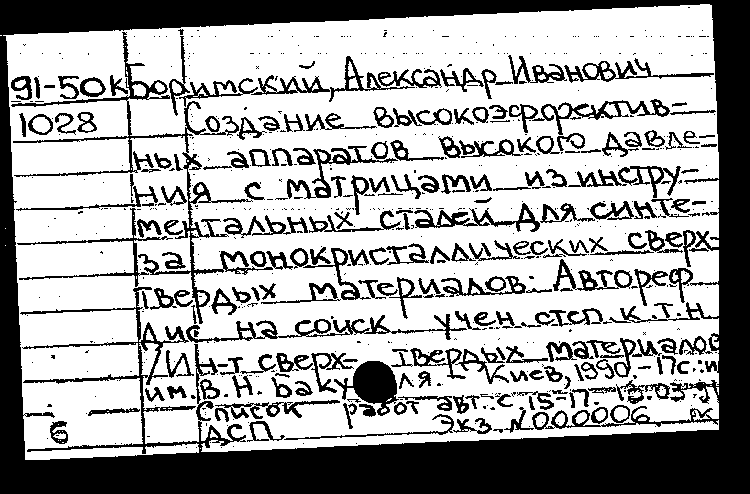 91-50к Боритский, Александр Иванович
1028 Создание высокоэффектив-
ных аппаратов высокого давле-
ния с матрицами из инстру-
ментальных сталей для синте-
за монокристаллических сверх-
твердых материалов: Автореф
дис на соиск. учен. степ. к.т.н
/Ин-т сверх- твердых материалов
им. В.Н. Баку ля. - Киев, 1990. - 17с.:и
Список работ авт.: с. 15-17. 13.03.91
6 ДСП. Экз. N 000006.